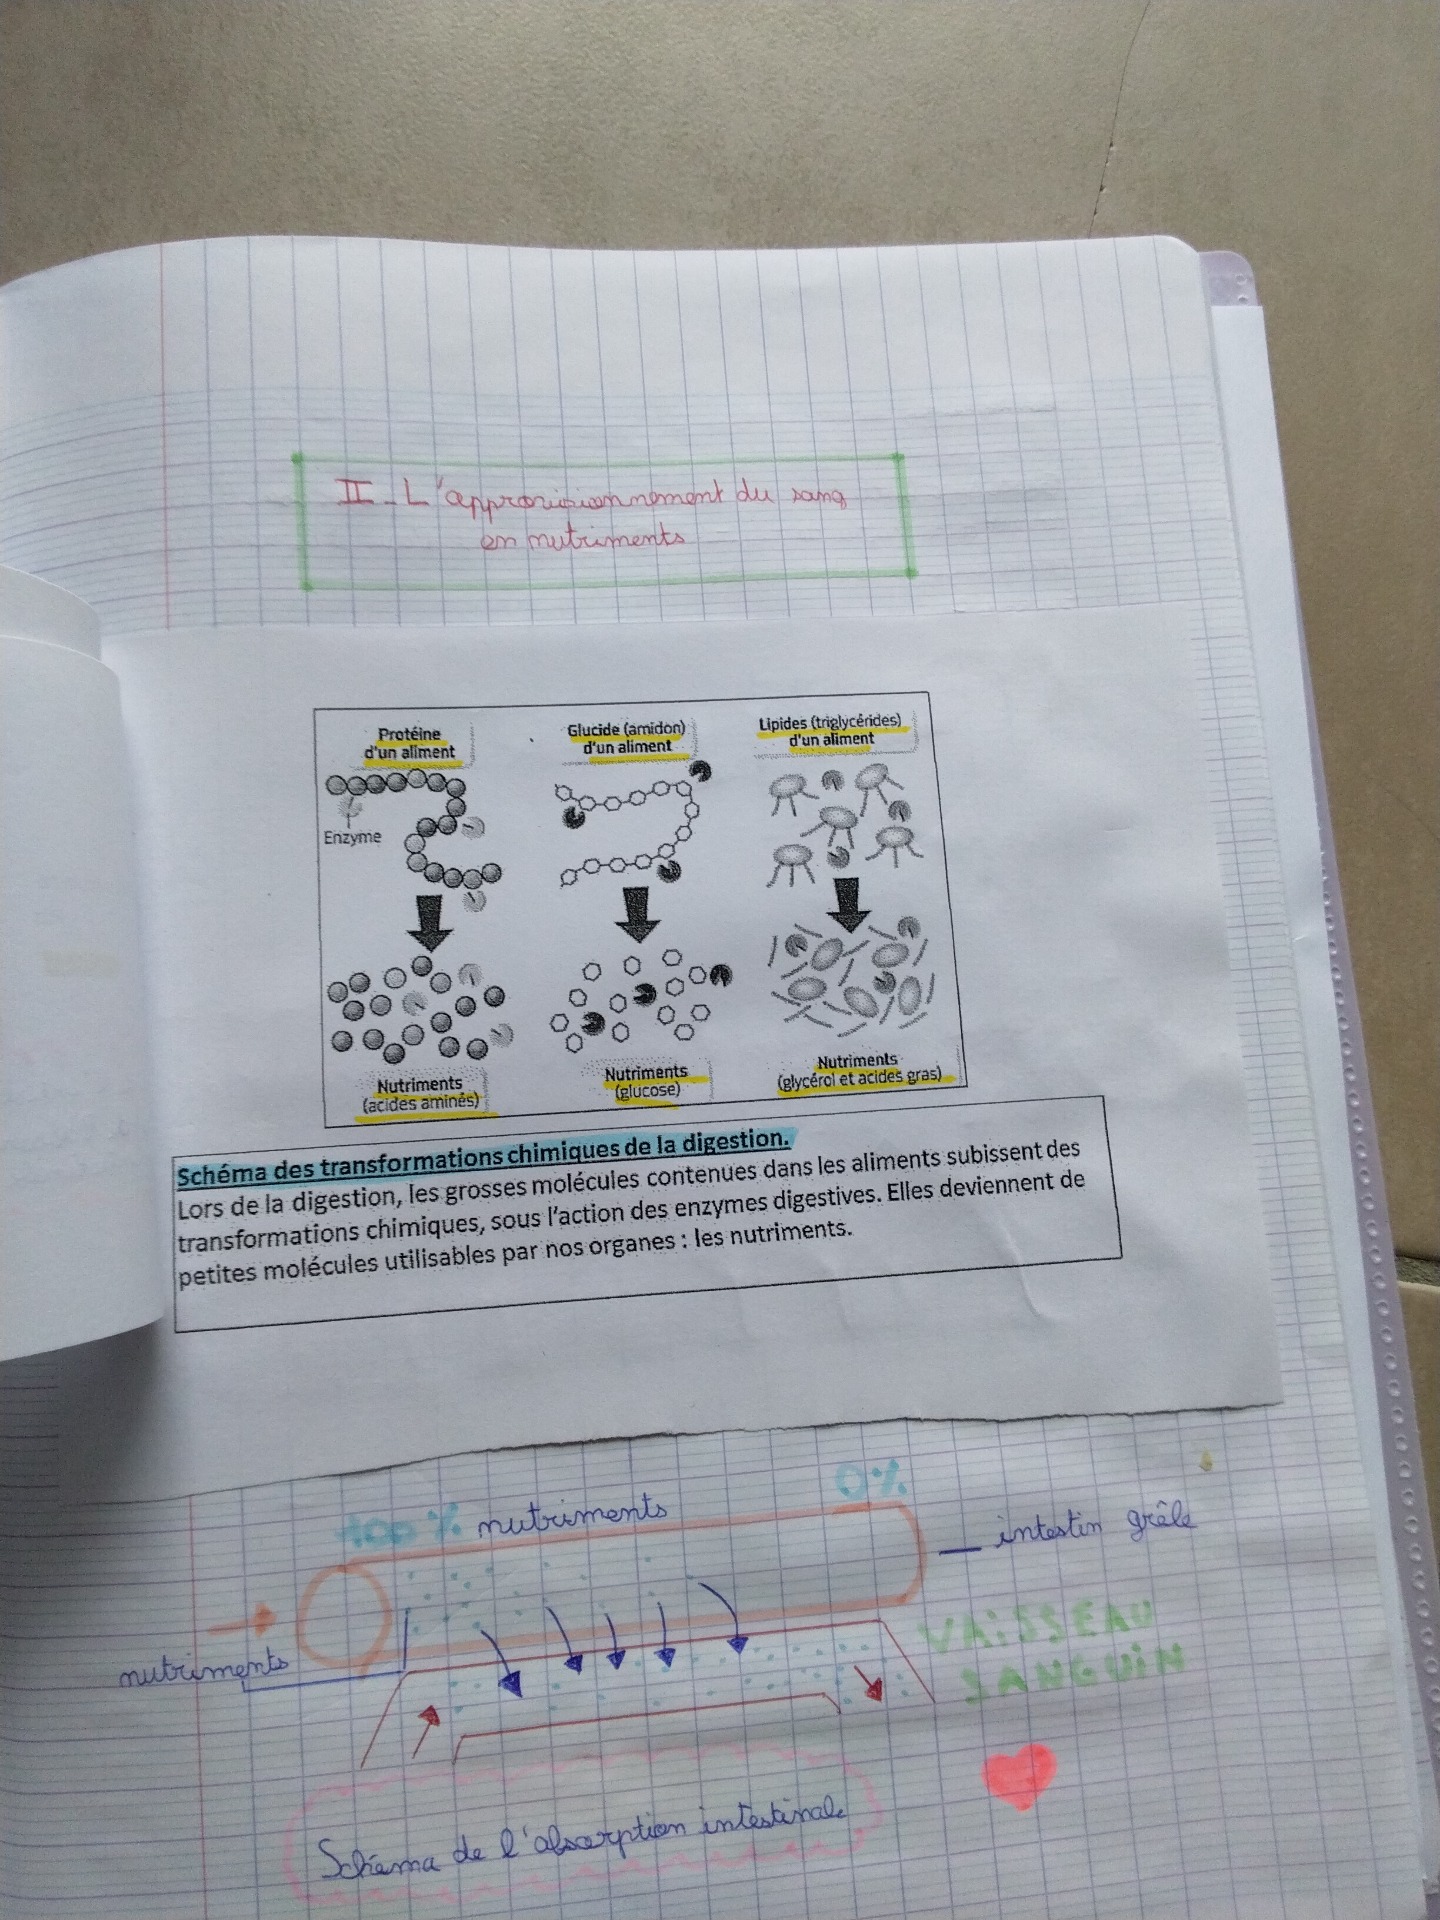 II_L'approvisionnement du sang
en nutriments
Protéine
d'un aliment
Glucide (amidon)
d'un aliment
Lipides (triglycérides)
d'un aliment
Enzyme
Nutriments
(acides aminés)
Nutriments
(glucose)
Nutriments
(glycérol et acides gras)
Schéma des transformations chimiques de la digestion.
Lors de la digestion, les grosses molécules contenues dans les aliments subissent des
transformations chimiques, sous l'action des enzymes digestives. Elles deviennent de
petites molécules utilisables par nos organes : les nutriments.
100% nutriments
0%
intestin grêle
nutriments
VAISSEAU
SANGUIN
Schéma de l'absorption intestinale